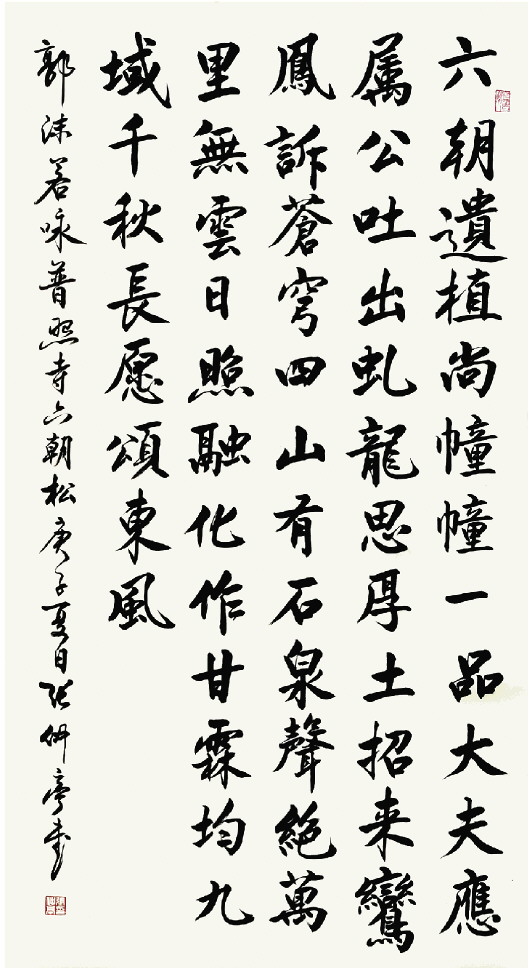 六朝遺植尚幢幢一品大夫應
属公吐出虬龍思厚土招来鸞
鳳訴蒼穹四山有石泉聲絕萬
里無雲日照融化作甘霖均九
域千秋長愿頌東風
郭沫若咏普照寺六朝松庚子夏日张仲亭書